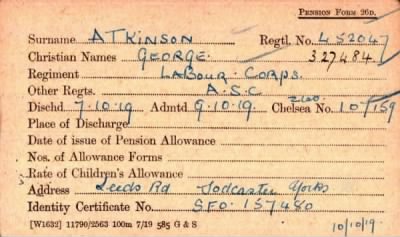 PENSION FORM 26D.
Surname ATKINSON Regtl. No. 452047
Christian Names GEORGE. 327484
Regiment LABOUR CORPS.
Other Regts. A.S.C
Dischd 7.10.19 Admtd 9.10.19. Chelsea No. 107159
Place of Discharge
Date of issue of Pension Allowance
Nos. of Allowance Forms
Rate of Children's Allowance
Address Leeds Rd Tadcaster Yorks
Identity Certificate No. SFO. 157480
[W1632] 11790/2563 100m 7/19 585 G & S 10/10/19.